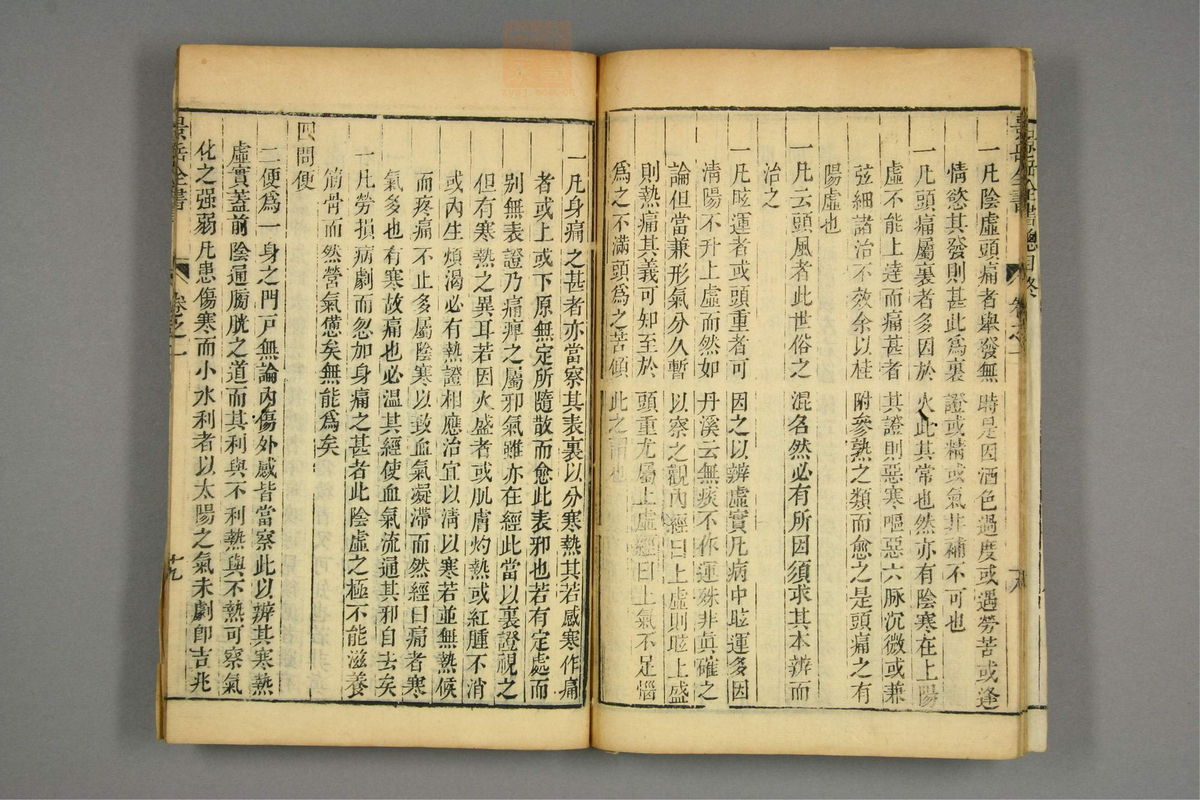 一凡陰虛頭痛者舉發無時是因酒色過度或遇勞苦或逢
情慾其發則甚此爲裏證或精或氣非補不可也
一凡頭痛屬裏者多因於火此其常也然亦有陰寒在上陽
虛不能上達而痛甚者其證則惡寒嘔惡六脉沉微或兼
弦細諸治不效余以桂附參熟之類而愈之是頭痛之有
陽虛也
一凡云頭風者此世俗之混名然必有所因須求其本辨而
治之
一凡眩運者或頭重者可因之以辨虛實凡病中眩運多因
清陽不升上虛而然如丹溪云無痰不作運殊非眞確之
論但當兼形氣分久暫以察之觀內經曰上虛則眩上盛
則熱痛其義可知至於頭重尤屬上虛經曰上氣不足惱
爲之不滿頭爲之苦傾此之謂也
景岳全書 卷之一 十八
一凡身痛之甚者亦當察其表裏以分寒熱其若感寒作痛
者或上或下原無定所隨散而愈此表邪也若有定處而
别無表證乃痛痺之屬邪氣雖亦在經此當以裏證視之
但有寒熱之異耳若因火盛者或肌膚灼熱或紅腫不消
或內生煩渴必有熱證相應治宜以清以寒若並無熱候
而疼痛不止多屬陰寒以致血氣凝滯而然經曰痛者寒
氣多也有寒故痛也必温其經使血氣流通其邪自去矣
一凡勞損病劇而忽加身痛之甚者此陰虛之極不能滋養
筋骨而然營氣憊矣無能爲矣
四問便
二便爲一身之門戶無論內傷外感皆當察此以辨其寒熱
虛實蓋前陰通膀胱之道而其利與不利熱與不熱可察氣
化之强弱凡患傷寒而小水利者以太陽之氣未劇即吉兆
景岳全書 卷之一 十九